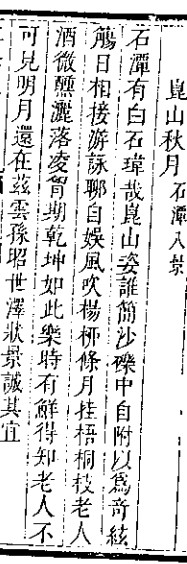 崑山秋月石潭八景
石潭有白石瑋哉崑山姿誰簡沙礫中自附以為奇絃
觴日相接游詠聊自娛風吹楊柳條月挂梧桐枝老人
酒微醺灑落凌曾期乾坤如此樂時有鮮得知老人不
可見明月還在茲雲孫昭世澤狀景誠其宜